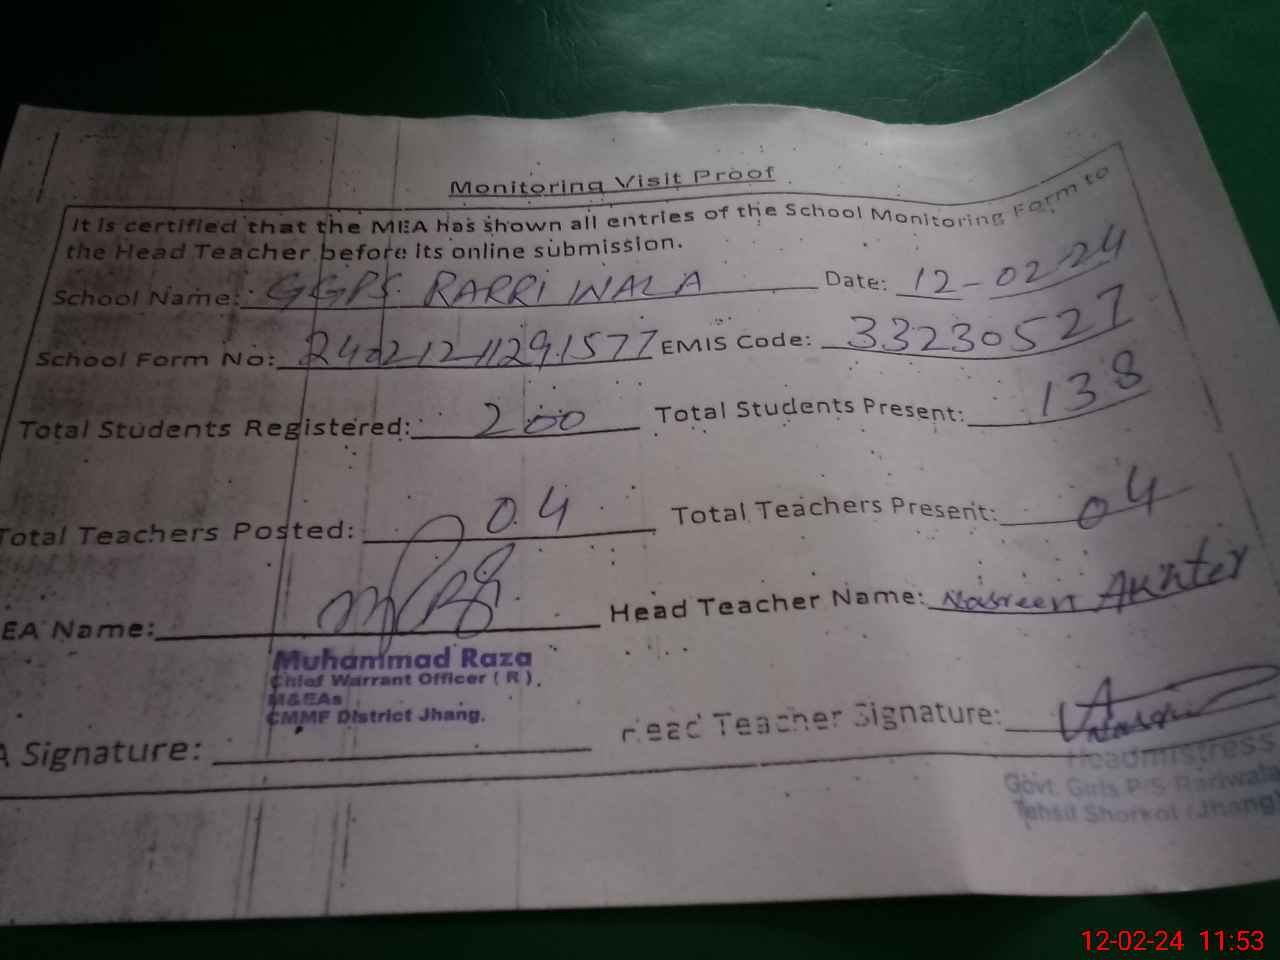 Monitoring Visit Proof
It is certified that the MEA has shown all entries of the School Monitoring Form to
the Head Teacher before its online submission.
School Name: GGPS RARRI WALA Date: 12-02-24
School Form No: 2402121129.1577 EMIS Code: 33230527
Total Students Registered: 200 Total Students Present: 138
Total Teachers Posted: 04 Total Teachers Present: 04
EA Name: Head Teacher Name: Nasreen Akhter
Muhammad Raza
Chief Warrant Officer ( R ).
M&EAs
CMMF District Jhang.
A Signature: Head Teacher Signature:
Headmistress
Govt. Girls P/S Rariwala
Tehsil Shorkot (Jhang)
12-02-24 11:53